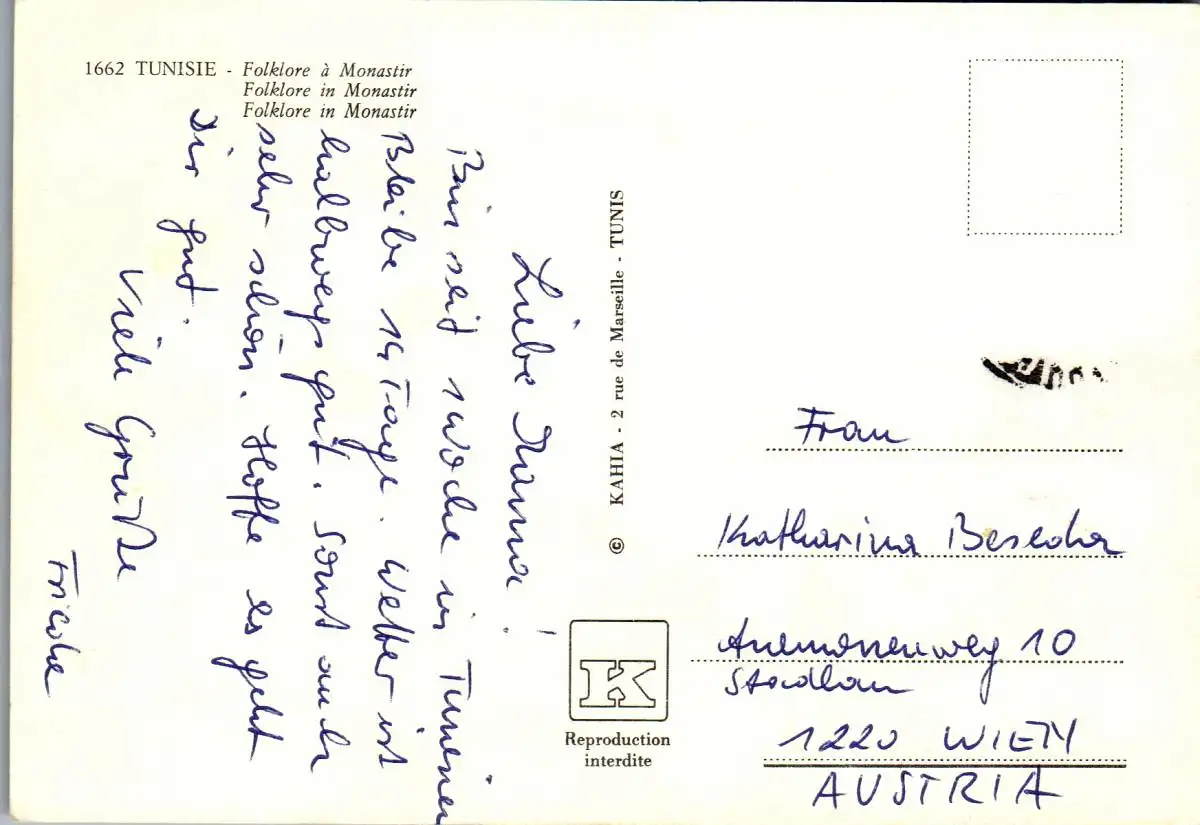 1662 TUNISIE - Folklore à Monastir
Folklore in Monastir
Folklore in Monastir
Liebe Mama!
Bin seit 1 Woche in Tunesien
Bleibe 14 Tage. Wetter ist
halbwegs gut. Sonst auch
sehr schön. Hoffe es geht
Dir gut.
Viele Grüße
© KAHIA - 2 rue de Marseille - TUNIS
Reproduction
interdite
K
Frau
Katharina
Anemonenweg 10
Stadlau
1220 WIEN
AUSTRIA